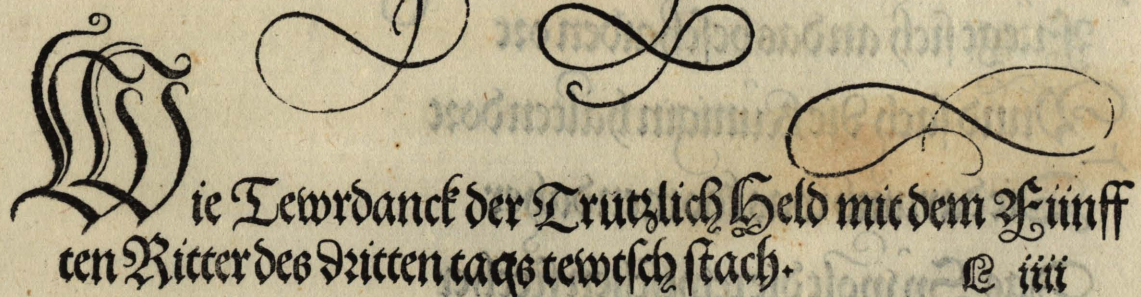 Wie Tewrdanck der Trutzlich Held mit dem Fünff
ten Ritter des dritten tags tewtsch stach. C iiii